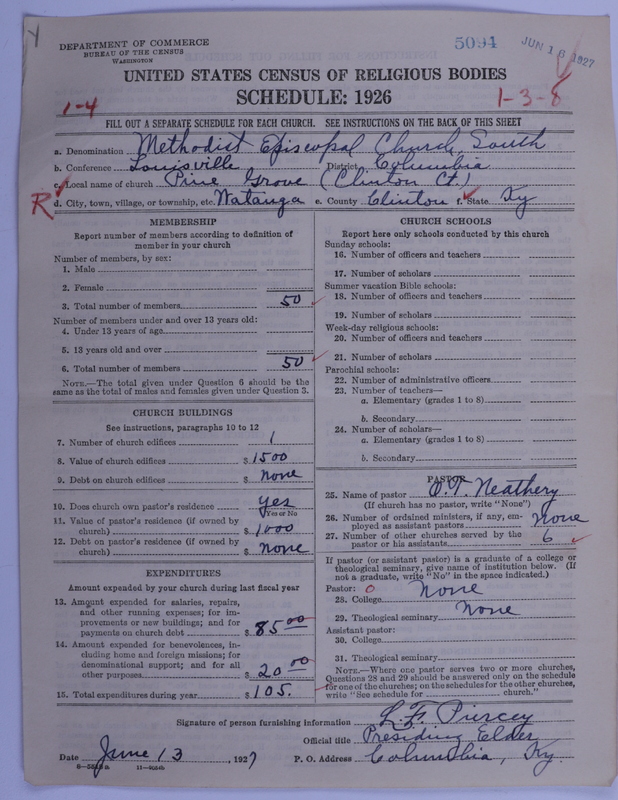 DEPARTMENT OF COMMERCE
BUREAU OF THE CENSUS
WASHINGTON
5094
JUN 16 1927
UNITED STATES CENSUS OF RELIGIOUS BODIES
SCHEDULE: 1926
1-4
1-3-8
FILL OUT A SEPARATE SCHEDULE FOR EACH CHURCH. SEE INSTRUCTIONS ON THE BACK OF THIS SHEET
a. Denomination Methodist Episcopal Church, South
b. Conference Louisville District Columbia
c. Local name of church Pine Grove (Clinton Ct.)
R
d. City, town, village, or township, etc. Watauga e. County Clinton f. State Ky
MEMBERSHIP
Report number of members according to definition of
member in your church
Number of members, by sex:
1. Male
2. Female
3. Total number of members 50
Number of members under and over 13 years old:
4. Under 13 years of age
5. 13 years old and over
6. Total number of members 50
NOTE.—The total given under Question 6 should be the
same as the total of males and females given under Question 3.
CHURCH BUILDINGS
See instructions, paragraphs 10 to 12
7. Number of church edifices 1
8. Value of church edifices $1500
9. Debt on church edifices $ none
10. Does church own pastor's residence yes
Yes or No
11. Value of pastor's residence (if owned by
church) $1000
12. Debt on pastor's residence (if owned by
church) $ none
EXPENDITURES
Amount expended by your church during last fiscal year
13. Amount expended for salaries, repairs,
and other running expenses; for im-
provements or new buildings; and for
payments on church debt $85 00
14. Amount expended for benevolences, in-
cluding home and foreign missions; for
denominational support; and for all
other purposes $20 00
15. Total expenditures during year $105.
CHURCH SCHOOLS
Report here only schools conducted by this church
Sunday schools:
16. Number of officers and teachers
17. Number of scholars
Summer vacation Bible schools:
18. Number of officers and teachers
19. Number of scholars
Week-day religious schools:
20. Number of officers and teachers
21. Number of scholars
Parochial schools:
22. Number of administrative officers
23. Number of teachers—
a. Elementary (grades 1 to 8)
b. Secondary
24. Number of scholars—
a. Elementary (grades 1 to 8)
b. Secondary
PASTOR
25. Name of pastor O.T. Neathery
(If church has no pastor, write "None")
26. Number of ordained ministers, if any, em-
ployed as assistant pastors None
27. Number of other churches served by the
pastor or his assistants 6
If pastor (or assistant pastor) is a graduate of a college or
theological seminary, give name of institution below. (If
not a graduate, write "No" in the space indicated.)
Pastor: 0
28. College None
29. Theological seminary None
Assistant pastor:
30. College
31. Theological seminary
NOTE.—Where one pastor serves two or more churches,
Questions 28 and 29 should be answered only on the schedule
for one of the churches; on the schedules for the other churches,
write "See schedule for church."
Signature of person furnishing information L.F. Piercey
Official title Presiding Elder
Date June 13, 1927 P. O. Address Columbia, Ky.